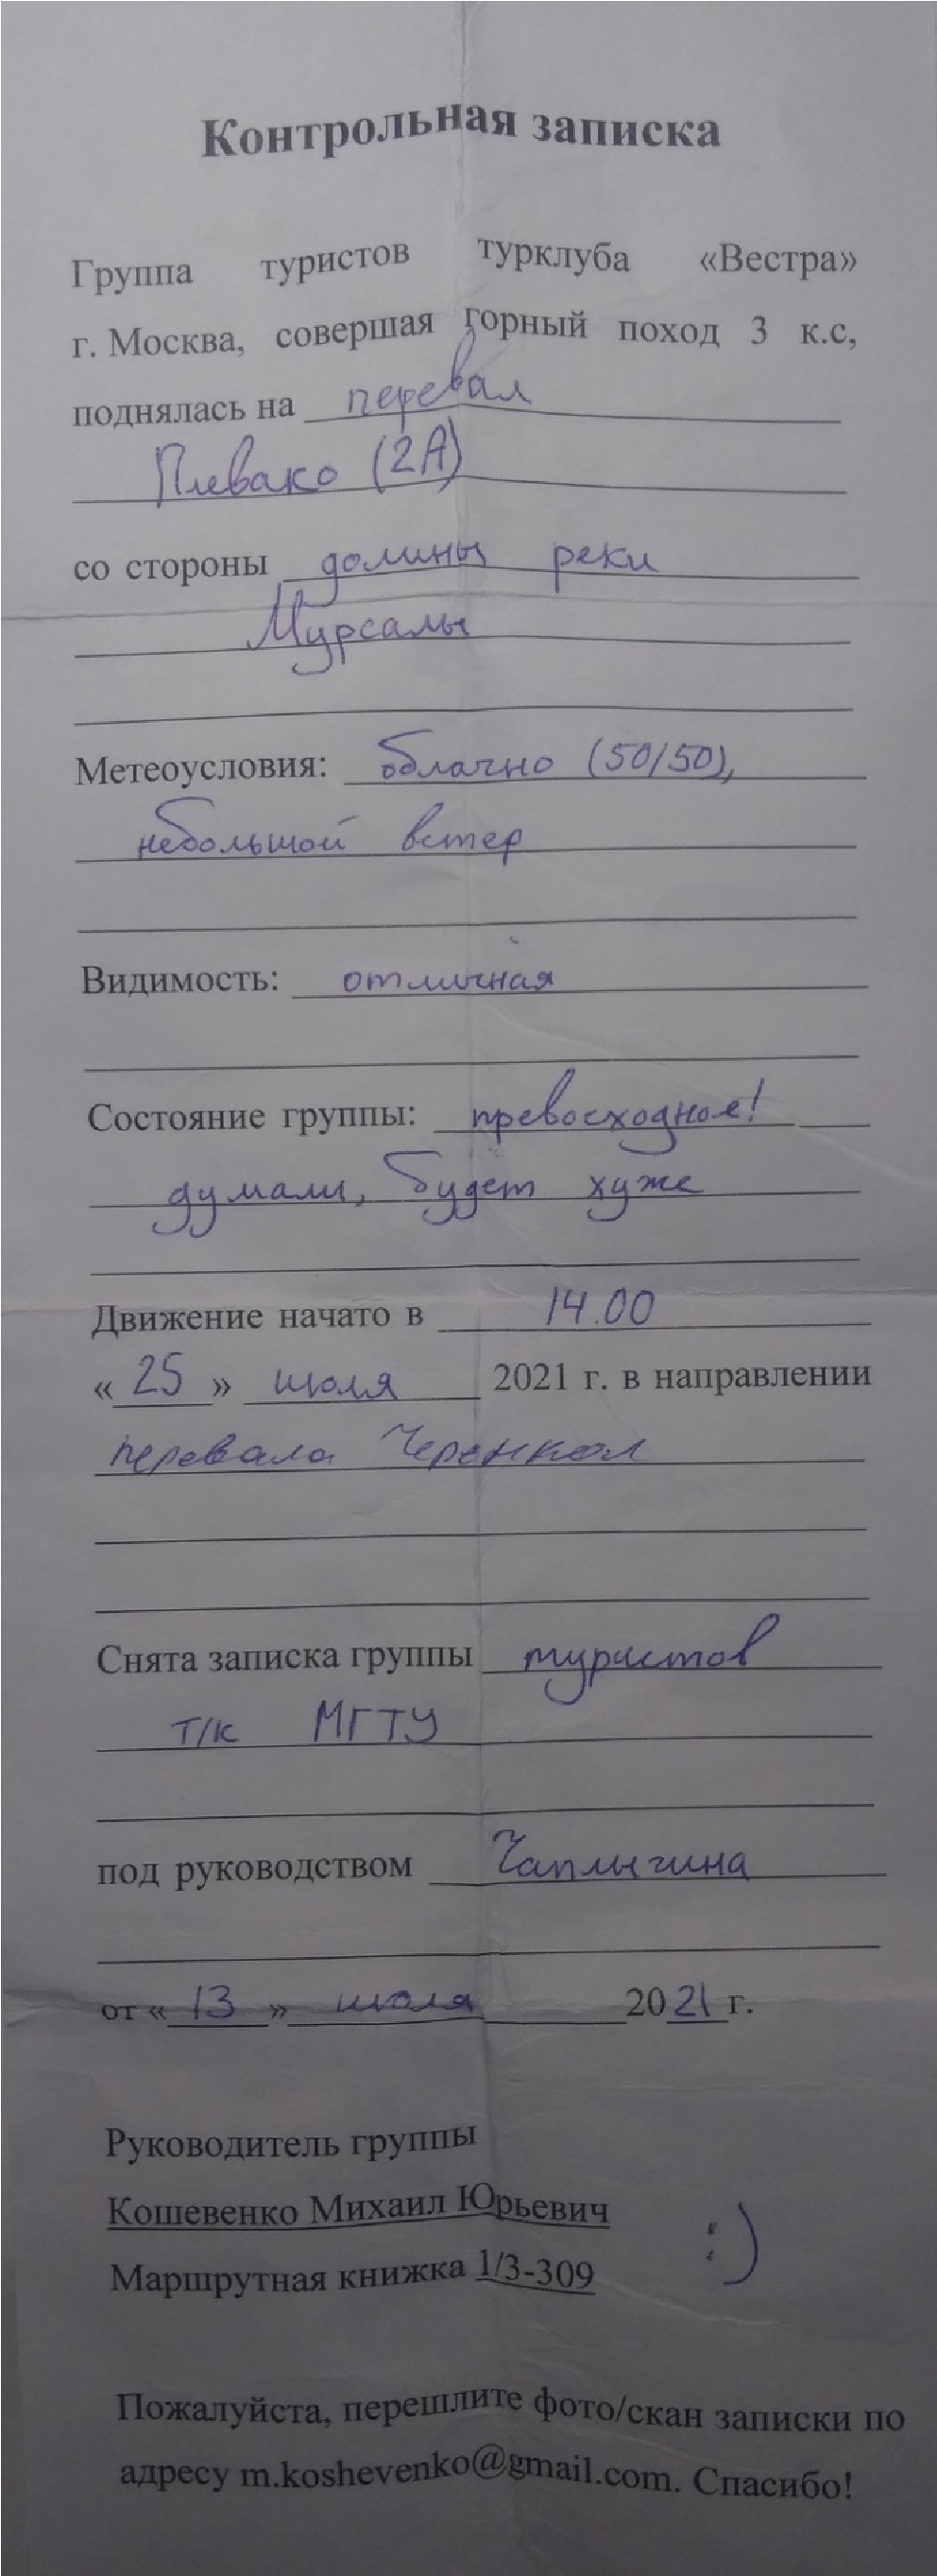 Контрольная записка
Группа туристов турклуба «Вестра»
г. Москва, совершая горный поход 3 к.с,
поднялась на перевал
Плевако (2А)
со стороны долины реки
Мурсалы
Метеоусловия: облачно (50/50),
небольшой ветер
Видимость: отличная
Состояние группы: превосходное!
думали, будет хуже
Движение начато в 14.00
«25» июля 2021 г. в направлении
перевала Черенкол
Снята записка группы туристов
т/к МГТУ
под руководством Чаплыгина
от «13» июля 2021 г.
Руководитель группы
Кошевенко Михаил Юрьевич
:)
Маршрутная книжка 1/3-309
Пожалуйста, перешлите фото/скан записки по
адресу m.koshevenko@gmail.com. Спасибо!